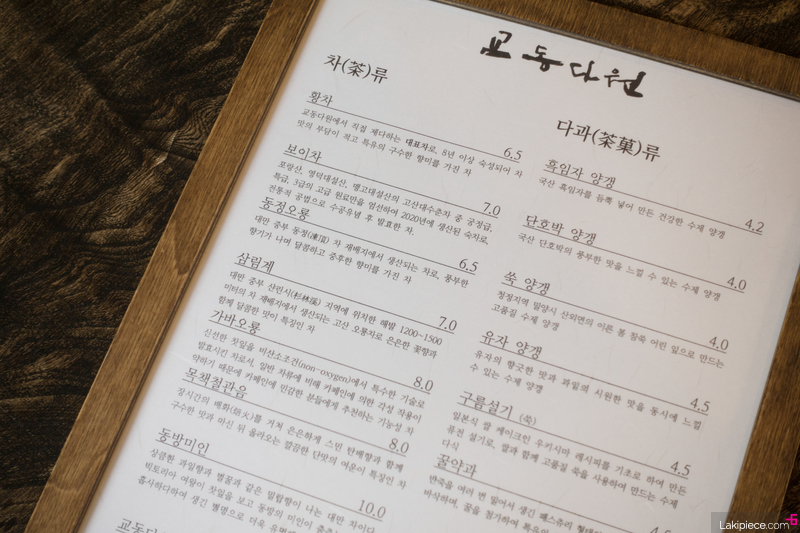 교동다원
차(茶)류
황차 6.5
교동다원에서 직접 제다하는 대표차로, 8년 이상 숙성되어 차
맛의 부담이 적고 특유의 구수한 향미를 가진 차
보이차 7.0
포랑산, 영덕대설산, 맹고대설산의 고산대수춘차 중 궁정급,
특급, 3급의 고급 원료만을 엄선하여 2020에 생산된 숙차로,
전통적 공법으로 수공유념 후 발효한 차.
동정오룡 6.5
대만 중부 동정(凍頂) 차 재배지에서 생산되는 차로, 풍부한
향기가 나며 달콤하고 중후한 향미를 가진 차
삼림계 7.0
대만 중부 산린시(杉林溪) 지역에 위치한 해발 1200~1500
미터의 차 재배지에서 생산되는 고산 오룡차로 은은한 꽃향과
함께 달콤한 맛이 특징인 차
가바오룡 8.0
신선한 찻잎을 비산소조건(non-oxygen)에서 특수한 기술로
발효시킨 차로서, 일반 차류에 비해 카페인에 의한 각성 작용이
약하기 때문에 카페인에 민감한 분들에게 추천하는 기능성 차
목책철관음 8.0
장시간의 배화(焙火)를 거쳐 은은하게 스민 탄배향과 함께
구수한 맛과 마신 뒤 올라오는 깔끔한 단맛의 여운이 특징인 차
동방미인 10.0
상큼한 과일향과 벌꿀과 같은 밀향이 나는 대만 차이다.
빅토리아 여왕이 찻잎을 보고 동방의 미인이
흡사하다하여 생긴 별명으로 더욱
교동다
다과(茶菓)류
흑임자 양갱 4.2
국산 흑임자를 듬뿍 넣어 만든 건강한 수제 양갱
단호박 양갱 4.0
국산 단호박의 풍부한 맛을 느낄 수 있는 수제 양갱
쑥 양갱 4.0
청정지역 밀양시 산외면의 이른 봄 참쑥 어린 잎으로 만드는
고품질 수제 양갱
유자 양갱 4.5
유자의 향긋한 맛과 과일의 시원한 맛을 동시에 느낄
수 있는 수제 양갱
구름설기 (쑥) 4.5
일본식 쌀 케이크인 우키시마 레시피를 기초로 하여 만든
퓨전 설기로, 쌀과 함께 고품질 쑥을 사용하여 만드는 수제
다식
꿀약과
반죽을 여러 번 밀어서 생긴 페스츄리 형태
바삭하며, 꿀을 첨가하여
Lakipiece.com